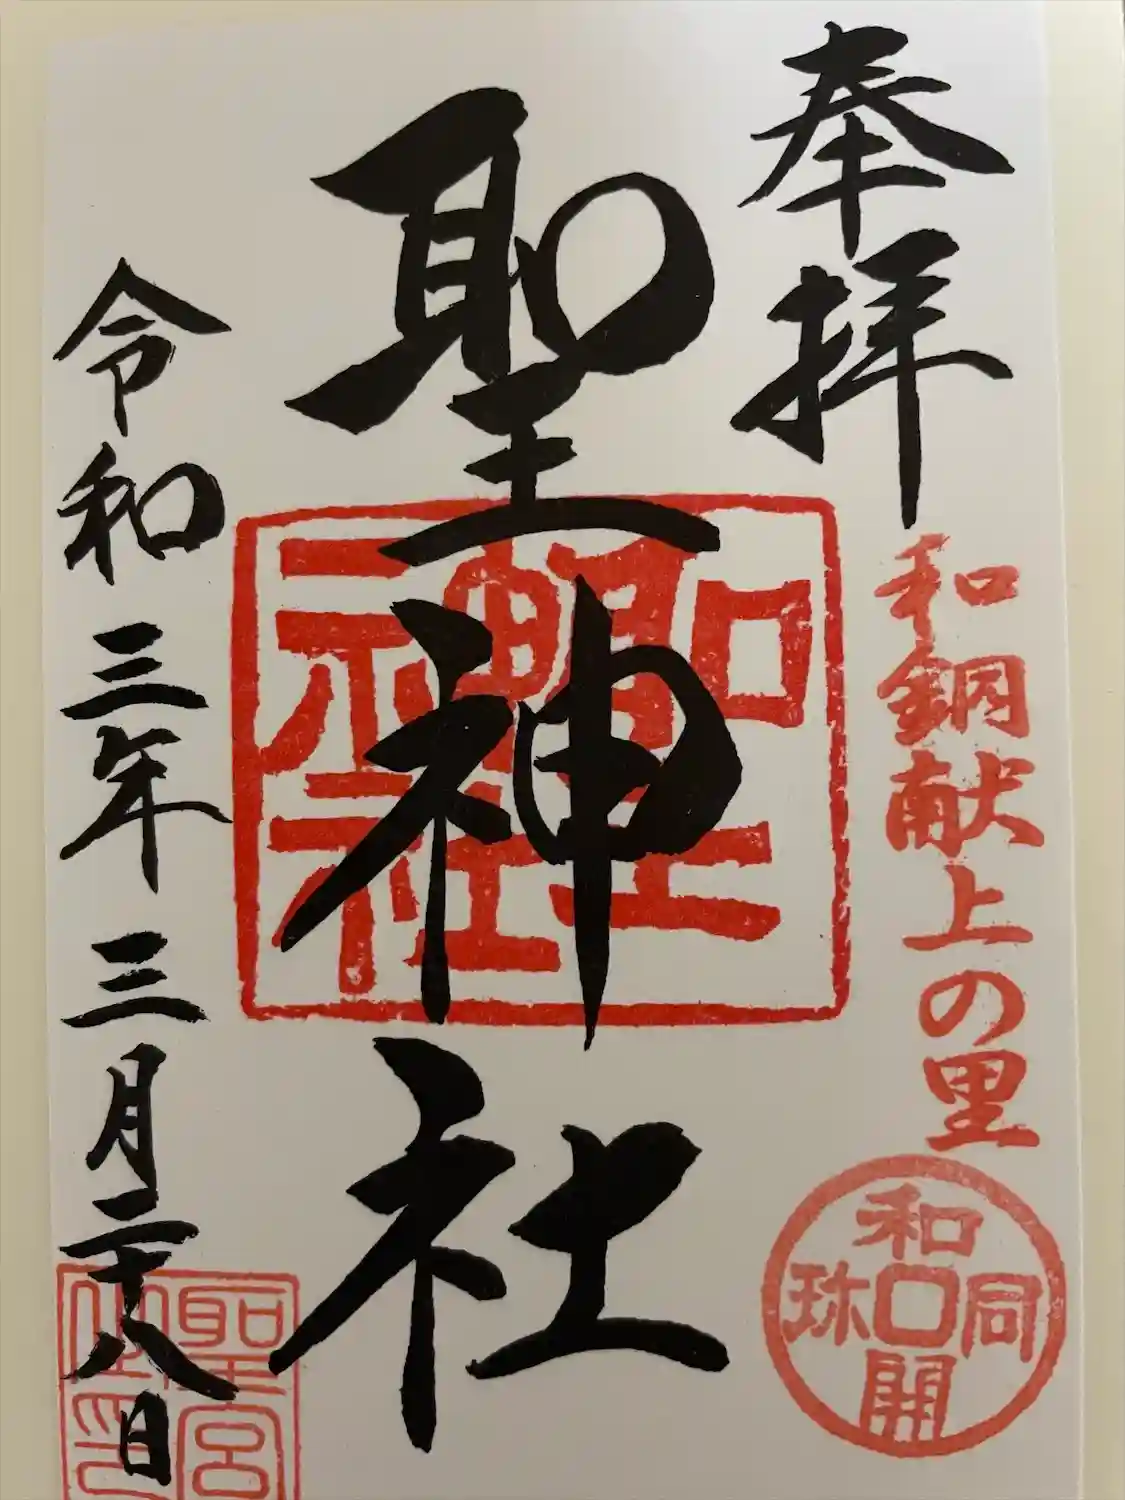 奉拝
和銅献上の里
和同開珎
聖神社
聖神社
令和三年三月二十八日
聖宮
之印